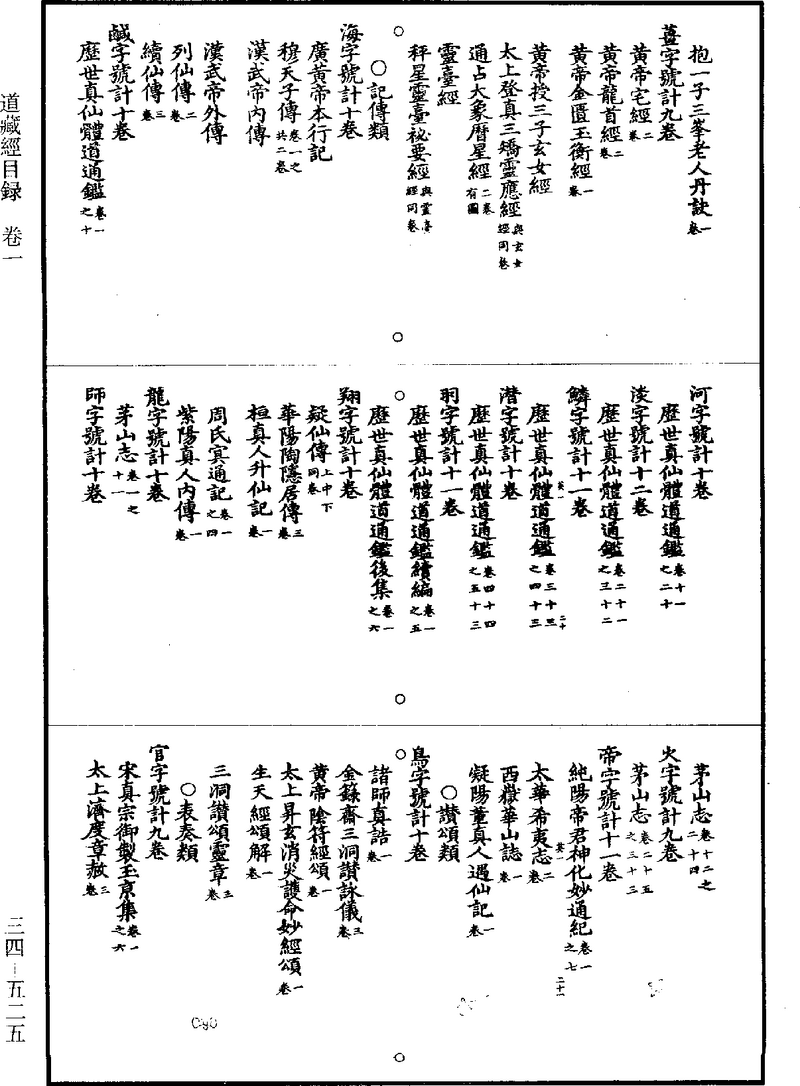 抱一子三峯老人丹訣一卷
薑字號計九卷
黃帝宅經二卷
黃帝龍首經二卷
黃帝金匱玉衡經一卷
黃帝授三子玄女經
太上登真三矯靈應經與玄女經同卷
通占大象曆星經二卷有圖
靈臺經
秤星靈臺祕要經與靈臺經同卷
○記傳類
海字號計十卷
廣黃帝本行記
穆天子傳卷一之六共二卷
漢武帝內傳
漢武帝外傳
列仙傳二卷
續仙傳三卷
鹹字號計十卷
歷世真仙體道通鑑卷一之十
河字號計十卷
歷世真仙體道通鑑卷十一之二十
淡字號計十二卷
歷世真仙體道通鑑卷二十一之三十二
鱗字號計十一卷
歷世真仙體道通鑑卷三十三之四十三
潛字號計十卷
歷世真仙體道通鑑卷四十四之五十三
羽字號計十一卷
歷世真仙體道通鑑續編卷一之五
歷世真仙體道通鑑後集卷一之六
翔字號計十卷
疑仙傳上中下同卷
華陽陶隱居傳三卷
桓真人升仙記一卷
周氏冥通記卷一之四
紫陽真人內傳一卷
龍字號計十卷
茅山志卷一之十一
師字號計十卷
茅山志卷十二之二十四
火字號計九卷
茅山志卷二十五之三十三
帝字號計十一卷
純陽帝君神化妙通紀卷一之七
太華希夷志二卷
西嶽華山誌一卷
凝陽董真人遇仙記一卷
○讚頌類
鳥字號計十卷
諸師真誥一卷
金籙齋三洞讚詠儀三卷
黃帝陰符經頌一卷
太上昇玄消災護命妙經頌一卷
生天經頌解一卷
三洞讚頌靈章三卷
○表奏類
官字號計九卷
宋真宗御製玉京集卷一之六
太上濟度章赦三卷
道藏經目録　卷一
三四－五二五